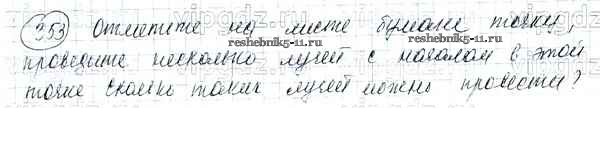 353 Отметьте на листе бумаги точку,
reshebnik5-11.ru
проведите несколько лучей с началом в этой
точке Сколько таких лучей можно провести?
reshebnik5-11.ru